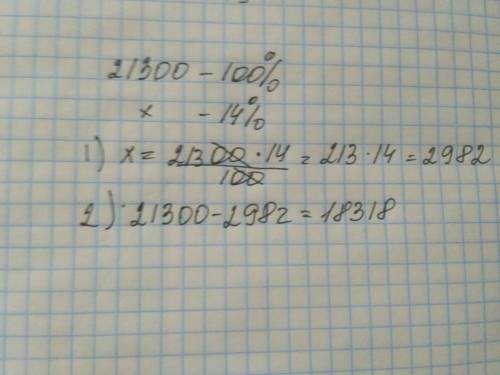 21300 - 100%
x - 14%
1) x = 21300 · 14 / 100 = 213 · 14 = 2982
2) 21300 - 2982 = 18318